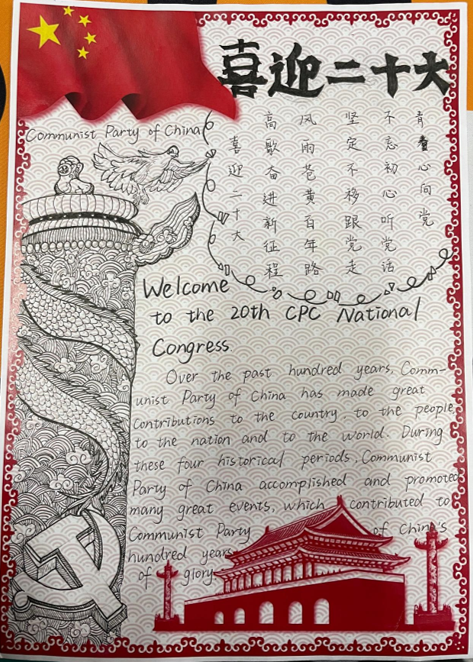 喜迎二十大
Communist Party of China
青心向党
不忘初心听党话
坚定不移跟党走
风雨苍黄百年路
高歌奋进新征程
喜迎二十大
Welcome
to the 20th CPC National
Congress
Over the past hundred years, Comm-
unist Party of China has made great
contributions to the country to the people
to the nation and to the world. During
these four historical periods, Communist
Party of China accomplished and promoted
many great events, which contributed to
Communist Party of China's
hundred years
of glory